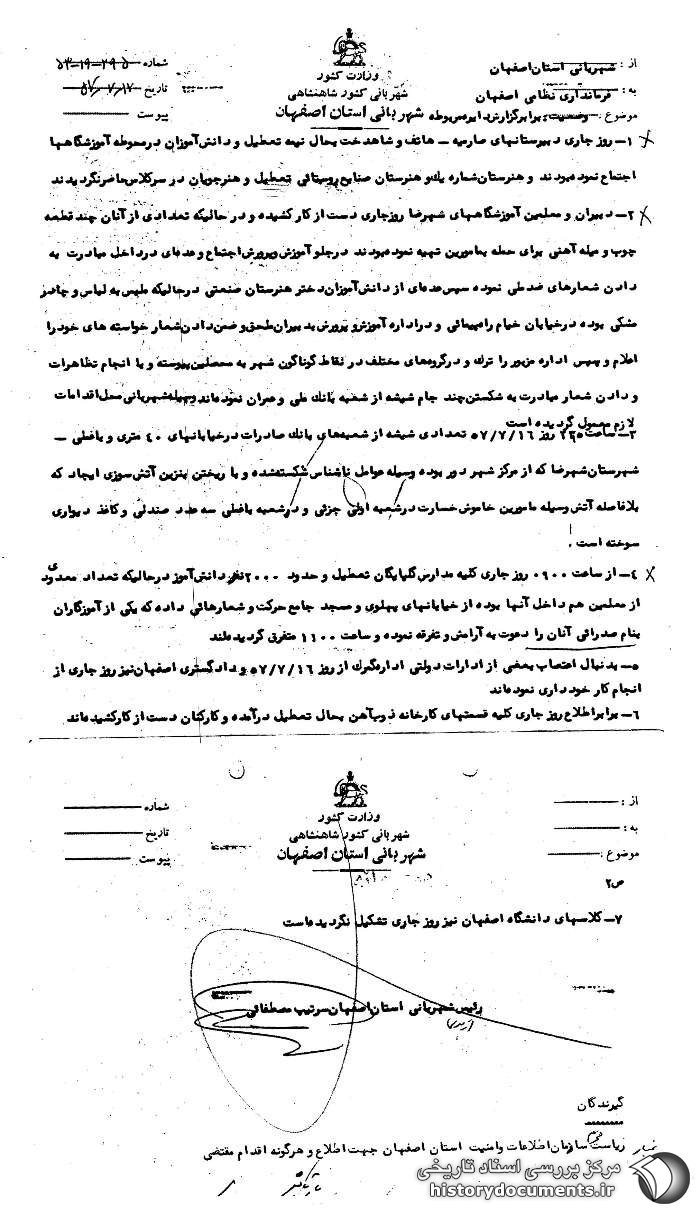 از : شهربانی استان اصفهان
به : فرمانداری نظامی اصفهان
موضوع : وضعیت برابر گزارش دایره مربوطه
وزارت کشور
شهربانی کشور شاهنشاهی
شهربانی استان اصفهان
شماره ۵۳-۱۹-۲۹۵
تاریخ ۵۷/۷/۱۷
پیوست
۱- روز جاری دبیرستانهای صارمیه - هاتف و شاهدخت بحال نیمه تعطیل و دانش‌آموزان در محوطه آموزشگاهها
اجتماع نموده بودند و هنرستان شماره یک و هنرستان صنایع روستائی تعطیل و هنرجویان در سر کلاس حاضر نگردیدند
۲- دبیران و معلمین آموزشگاههای شهرضا روز جاری دست از کار کشیده و در حالیکه تعدادی از آنان چند قطعه
چوب و میله آهنی برای حمله بمامورین تهیه نموده بودند در جلو آموزش و پرورش اجتماع و عده‌ای در داخل مبادرت به
دادن شعارهای ضد ملی نموده سپس عده‌ای از دانش‌آموزان دختر هنرستان صنعتی در حالیکه ملبس به لباس و چادر
مشکی بوده در خیابان خیام راه‌پیمائی و در اداره آموزش و پرورش به دبیران ملحق و ضمن دادن شعار خواسته های خود را
اعلام و سپس اداره مزبور را ترک و در گروه‌های مختلف در نقاط گوناگون شهر به محصلین پیوسته و با انجام تظاهرات
و دادن شعار مبادرت به شکستن چند جام شیشه از شعبه بانک ملی و عمران نموده‌اند وسیله شهربانی محل اقدامات
لازم معمول گردیده است
۳- ساعت ۲۲۵۰ روز ۵۷/۷/۱۶ تعدادی شیشه از شعبه‌های بانک صادرات در خیابانهای ۴۰ متری و باغملی -
شهرستان شهرضا که از مرکز شهر دور بوده وسیله عوامل ناشناس شکسته شده و با ریختن بنزین آتش‌سوزی ایجاد که
بلافاصله آتش وسیله مامورین خاموش خسارت در شعبه اولی جزئی و در شعبه باغملی سه عدد صندلی و کاغذ دیواری
سوخته است .
۴- از ساعت ۰۹۰۰ روز جاری کلیه مدارس گلپایگان تعطیل و حدود ۲۰۰۰ نفر دانش‌آموز در حالیکه تعداد معدودی
از معلمین هم داخل آنها بوده از خیابانهای پهلوی و مسجد جامع حرکت و شعارهائی داده که یکی از آموزگاران
بنام صدرائی آنان را دعوت به آرامش و تفرقه نموده و ساعت ۱۱۰۰ متفرق گردیده‌اند
۵- بدنبال اعتصاب بعضی از ادارات دولتی اداره گمرک از روز ۵۷/۷/۱۶ و دادگستری اصفهان نیز روز جاری از
انجام کار خودداری نموده‌اند
۶- برابر اطلاع روز جاری کلیه قسمتهای کارخانه ذوب‌آهن بحال تعطیل درآمده و کارکنان دست از کار کشیده‌اند
از :
به :
موضوع :
وزارت کشور
شهربانی کشور شاهنشاهی
شهربانی استان اصفهان
شماره
تاریخ
پیوست
ص۲
۷- کلاسهای دانشگاه اصفهان نیز روز جاری تشکیل نگردیده است
رئیس شهربانی استان اصفهان سرتیپ مصطفائی
گیرندگان
ریاست سازمان اطلاعات و امنیت استان اصفهان جهت اطلاع و هرگونه اقدام مقتضی
مرکز بررسی اسناد تاریخی
historydocuments.ir